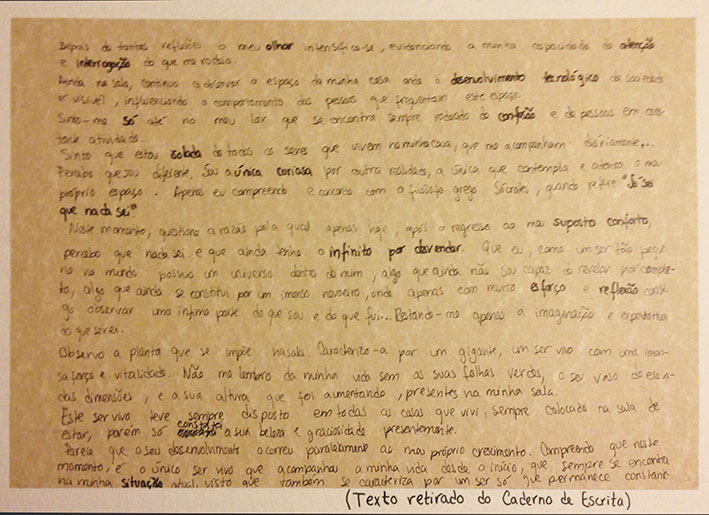 Depois de tantas reflexões o meu olhar intensifica-se, evidenciando a minha capacidade de atenção
e interrogação do que me rodeia.
Ainda na sala, continuo a observar o espaço da minha casa onde o desenvolvimento tecnológico da sociedade
é visível, influenciando o comportamento das pessoas que frequentam este espaço.
Sinto-me só até no meu lar que se encontra sempre rodeado de confusão e de pessoas em cons-
tante atividade.
Sinto que estou isolada de todos os seres que vivem na minha casa, que me acompanham diariamente...
Percebo que sou diferente. Sou a única curiosa por outra realidade, a única que contempla e atenta o meu
próprio espaço. Apenas eu compreendo e concordo com o filósofo grego Sócrates, quando refere "Só sei
que nada sei".
Neste momento, questiono a razão pela qual apenas hoje, após o regresso ao meu suposto conforto,
percebo que nada sei e que ainda tenho o infinito por desvendar. Que eu, como um ser tão peque
no no mundo possuo um universo dentro de mim, algo que ainda não sou capaz de revelar por comple-
to, algo que ainda se constitui por um imenso nevoeiro, onde apenas com muito esforço e reflexão consi-
go observar uma ínfima parte do que sou e do que fui... Restando-me apenas a imaginação e expectativa
do que serei.
Observo a planta que se impõe na sala. Caracterizo-a por um gigante, um ser vivo com uma imen-
sa força e vitalidade. Não me lembro da minha vida sem as suas folhas verdes, o seu vaso de eleva-
das dimensões, e a sua altura que foi aumentando, presentes na minha sala.
Este ser vivo teve sempre disposto em todas as casas que vivi, sempre colocado na sala de
estar, porém só constatei a sua beleza e graciosidade presentemente.
Parece que o seu desenvolvimento ocorreu paralelamente ao meu próprio crescimento. Compreendo que neste
momento, é o único ser vivo que acompanhou a minha vida desde o início, que sempre se encontra
na minha situação atual, visto que também se caracteriza por um ser só que permanece constante-
(Texto retirado do Caderno de Escrita)